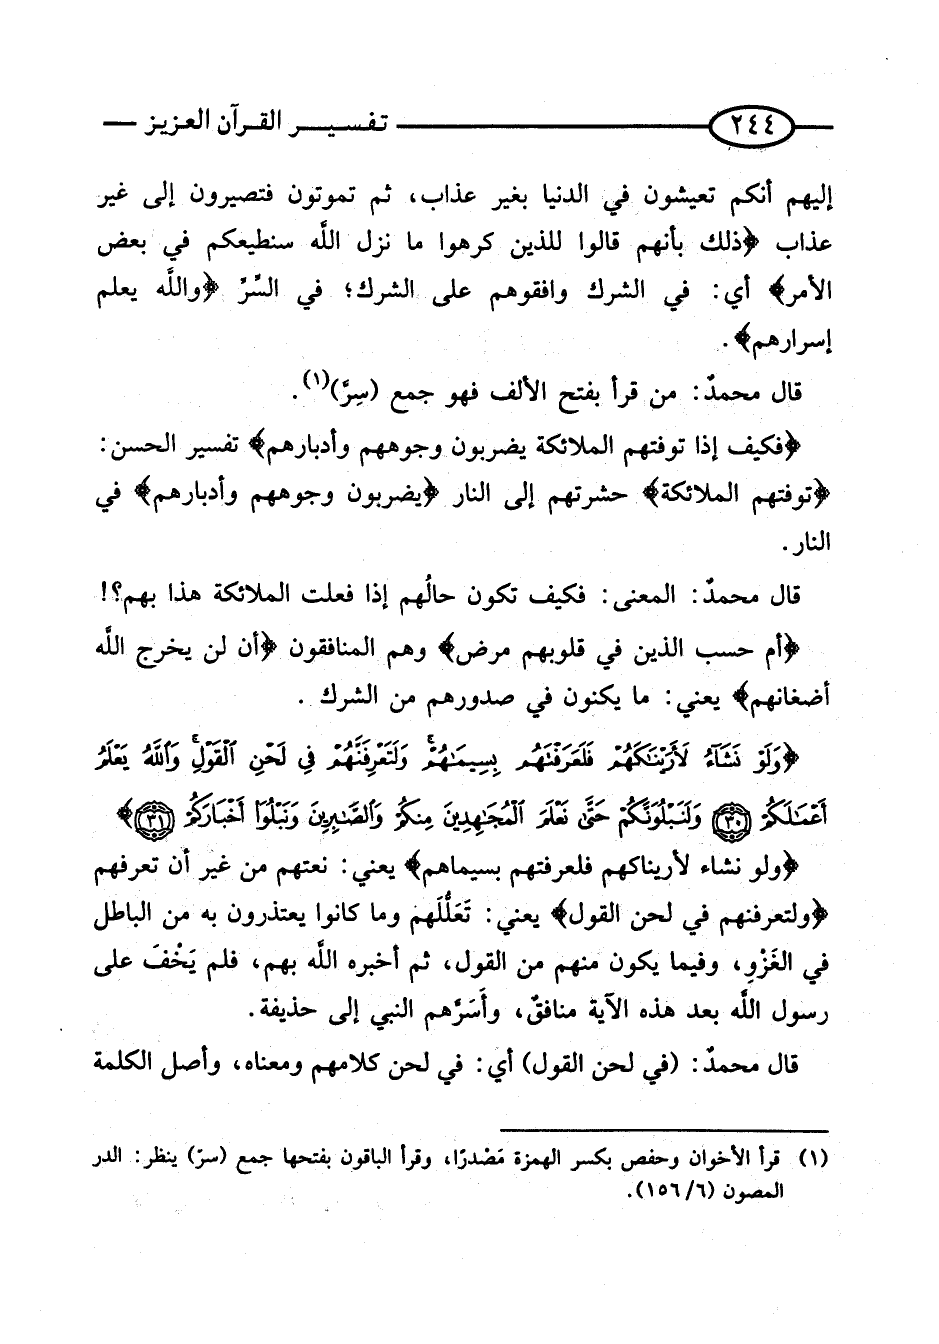 ٢٤٤ تفسير القرآن العزيز
إليهم أنكم تعيشون في الدنيا بغير عذاب، ثم تموتون فتصيرون إلى غير
عذاب ﴿ذلك بأنهم قالوا للذين كرهوا ما نزل اللَّه سنطيعكم في بعض
الأمر﴾ أي: في الشرك وافقوهم على الشرك؛ في السِّرِّ ﴿واللَّه يعلم
إسرارهم﴾.
قال محمدٌ: من قرأ بفتح الألف فهو جمع (سِرَّ)(١).
﴿فكيف إذا توفتهم الملائكة يضربون وجوههم وأدبارهم﴾ تفسير الحسن:
﴿توفتهم الملائكة﴾ حشرتهم إلى النار ﴿يضربون وجوههم وأدبارهم﴾ في
النار.
قال محمدٌ: المعنى: فكيف تكون حالُهم إذا فعلت الملائكة هذا بهم؟!
﴿أم حسب الذين في قلوبهم مرض﴾ وهم المنافقون ﴿أن لن يخرج اللَّه
أضغانهم﴾ يعني: ما يكنون في صدورهم من الشرك .
﴿وَلَوْ نَشَآءُ لَأَرَيْنَٰكَهُمْ فَلَعَرَفْتَهُم بِسِيمَٰهُمْۚ وَلَتَعْرِفَنَّهُمْ فِي لَحْنِ ٱلْقَوْلِۚ وَٱللَّهُ يَعْلَمُ
أَعْمَٰلَكُمْ ٣٠ وَلَنَبْلُوَنَّكُمْ حَتَّىٰ نَعْلَمَ ٱلْمُجَٰهِدِينَ مِنكُمْ وَٱلصَّٰبِرِينَ وَنَبْلُوَا۟ أَخْبَارَكُمْ ٣١﴾
﴿ولو نشاء لأريناكهم فلعرفتهم بسيماهم﴾ يعني: نعتهم من غير أن تعرفهم
﴿ولتعرفنهم في لحن القول﴾ يعني: تَعَلُّلَهم وما كانوا يعتذرون به من الباطل
في الغَزْوِ، وفيما يكون منهم من القول، ثم أخبره اللَّه بهم، فلم يَخْفَ على
رسول اللَّه بعد هذه الآية منافقٌ، وأَسَرَّهم النبي إلى حذيفة.
قال محمدٌ: (في لحن القول) أي: في لحن كلامهم ومعناه، وأصل الكلمة
(١) قرأ الأخوان وحفص بكسر الهمزة مَصْدرًا، وقرأ الباقون بفتحها جمع (سرّ) ينظر: الدر
المصون (٦/١٥٦).